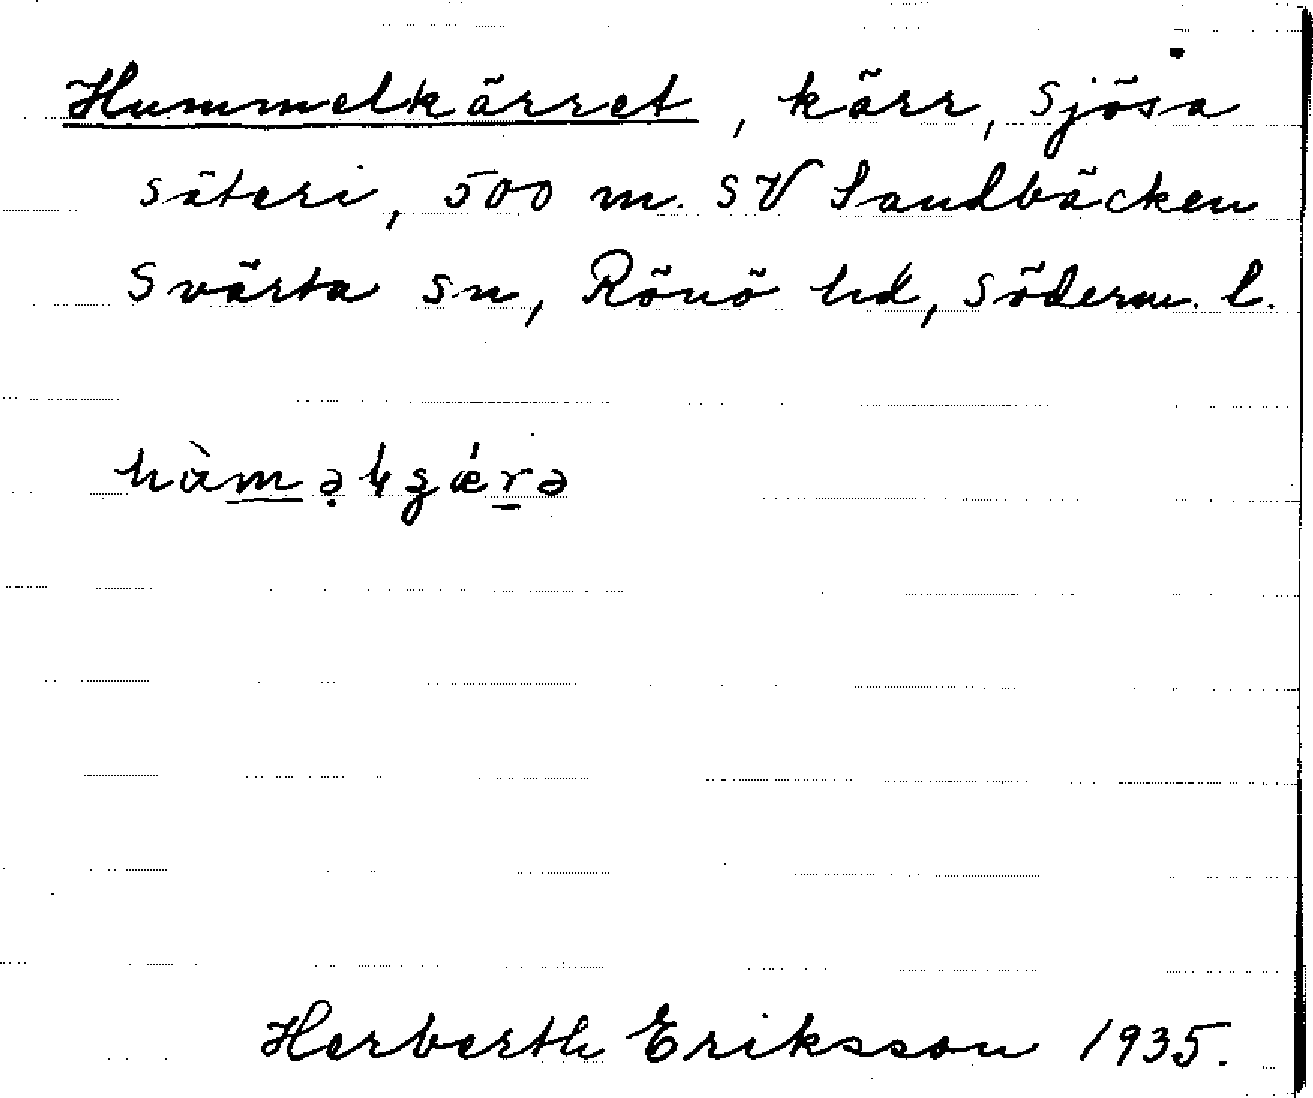 Hummelkärret, kärr, Sjösa
säteri, 500 m. SV Sandbäcken
Svärta sn, Rönö hd, Söderm. l.
Herberth Eriksson 1935.